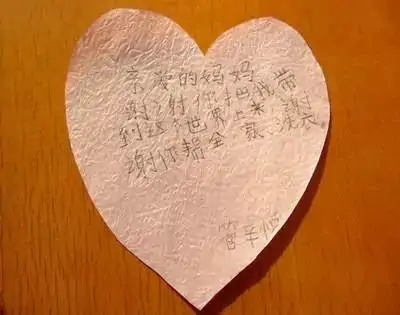 亲爱的妈妈
谢谢你把我带
到这个世界上来谢
谢你帮全家洗衣